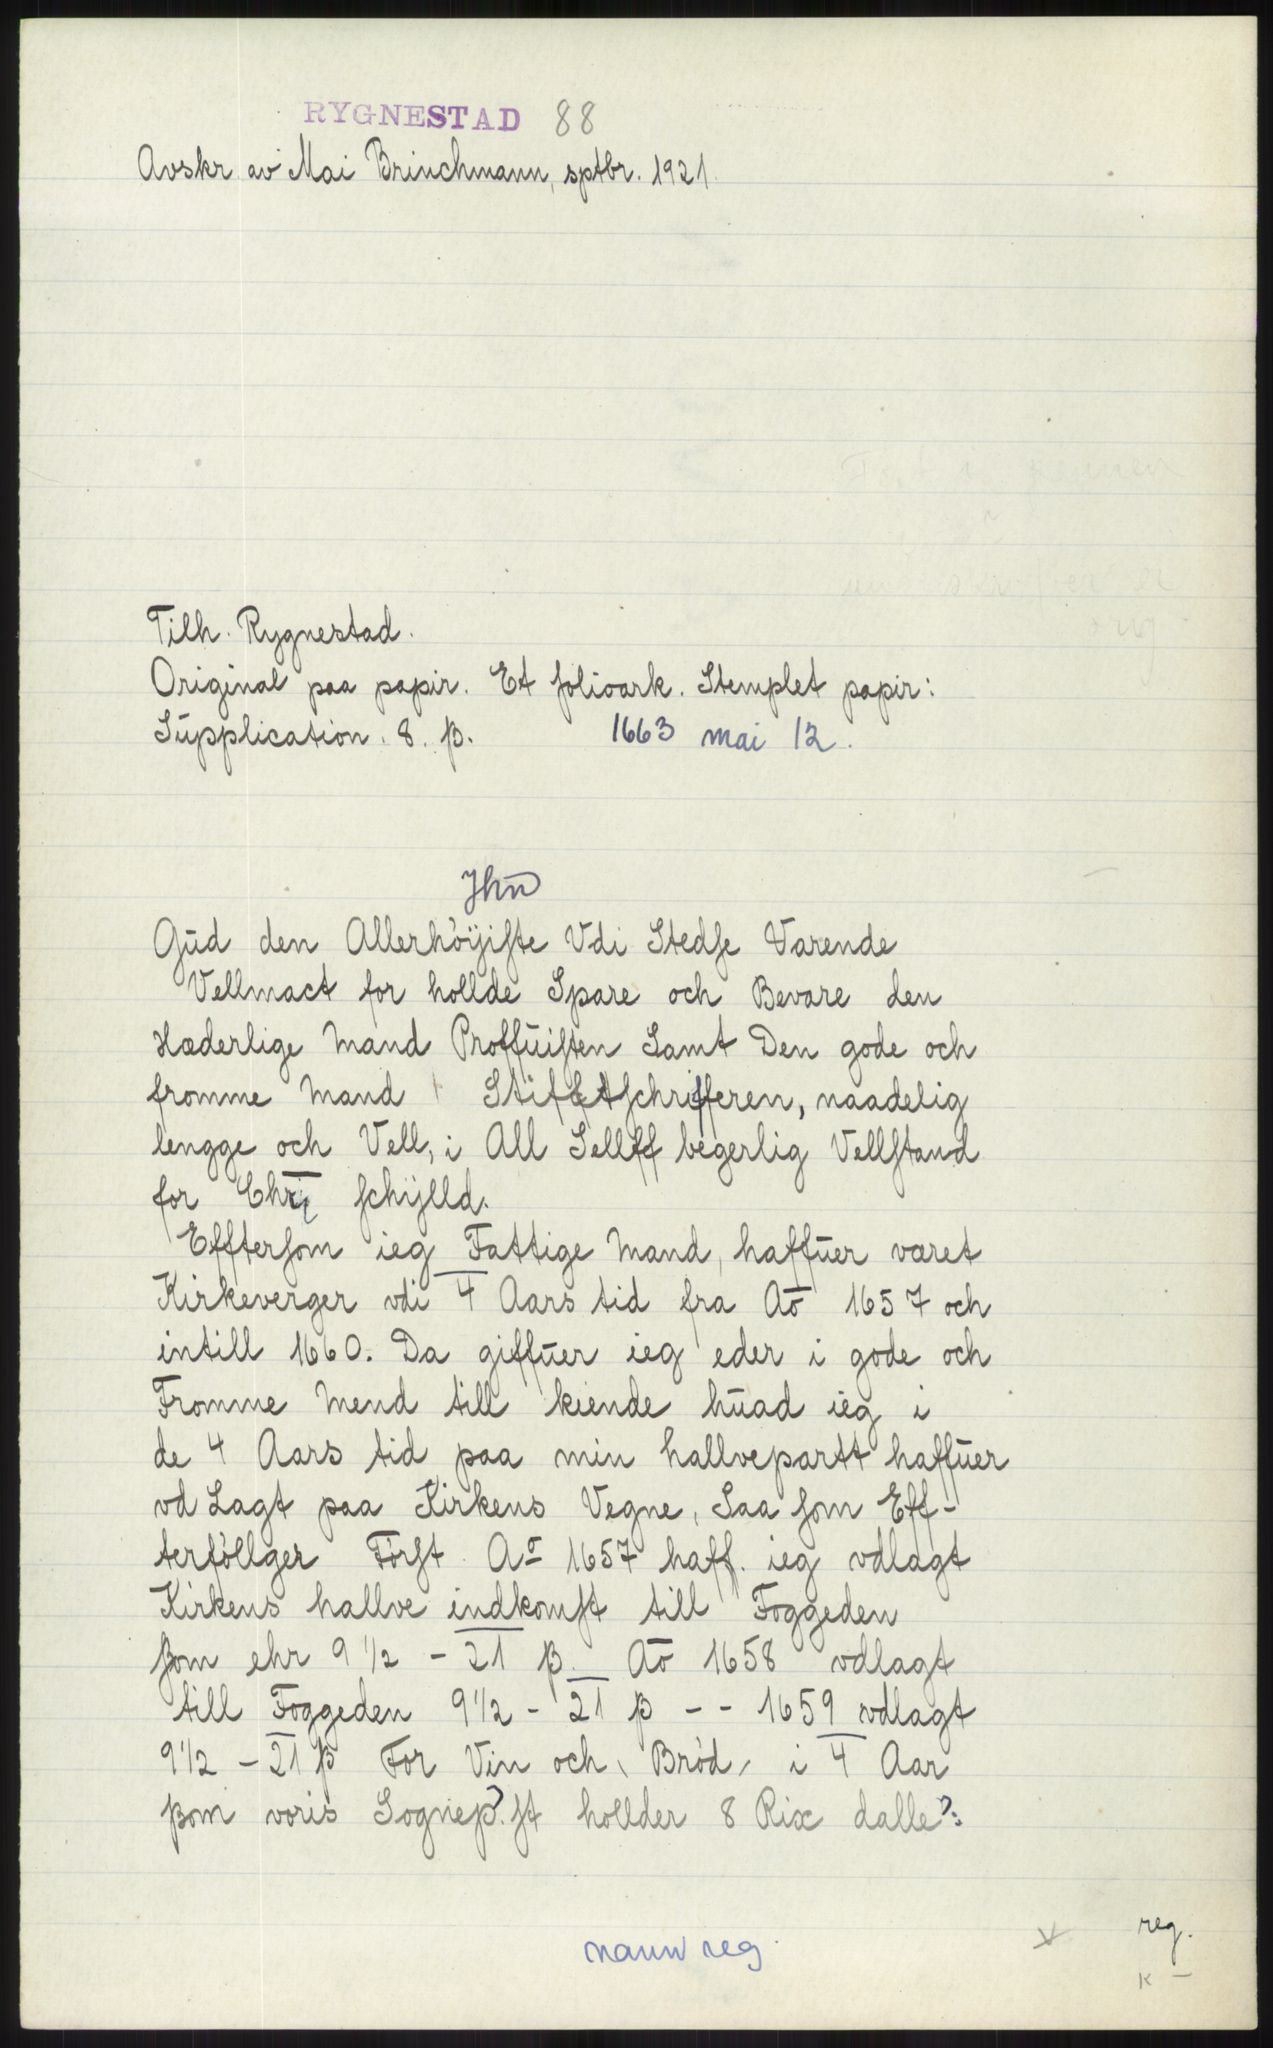 RYGNESTAD 88
Avskr. av Mai Brinchmann, sptbr. 1921.
Tilh. Rygnestad.
Original paa papir. Et folioark. Stemplet papir:
Supplication. 8. β.
1663 mai 12.
Jhn̄
Gud den Allerhöyiſte Vdi Stedſe Varende
Vellmact for hollde Spare och Bevare den
Hæderlige Mand Proffuiſten Samt Den gode och
fromme Mand Stifftſchrifferen, naadelig
lengge och Vell, i All Sellff begerlig Vellſtand
for Chri ſchÿlld.
Efftersom ieg Fattige Mand, haffuer været
Kirkeverger vdi 4 Aars tid fra Aō 1657 och
intill 1660. Da giffuer ieg eder i gode och
Fromme Mend till kiende huad ieg i
de 4 Aars tid paa min hallvepartt haffuer
vd Lagt paa Kirkens Vegne, Saa ſom Eff-
terföllger Förſt Aº 1657 haff. ieg vdlagt
Kirkens hallve indkomſt till Foggeden
ſom ehr 9 1/2 - 21 β. Aō 1658 vdlagt
till Foggeden 9 1/2 - 21 β - - 1659 vdlagt
9 1/2 - 21 β For Vin och Bröd i 4 Aar
βom voris Sognep. ſt hollder 8 Rix dalle:
navn reg.
reg.
K -